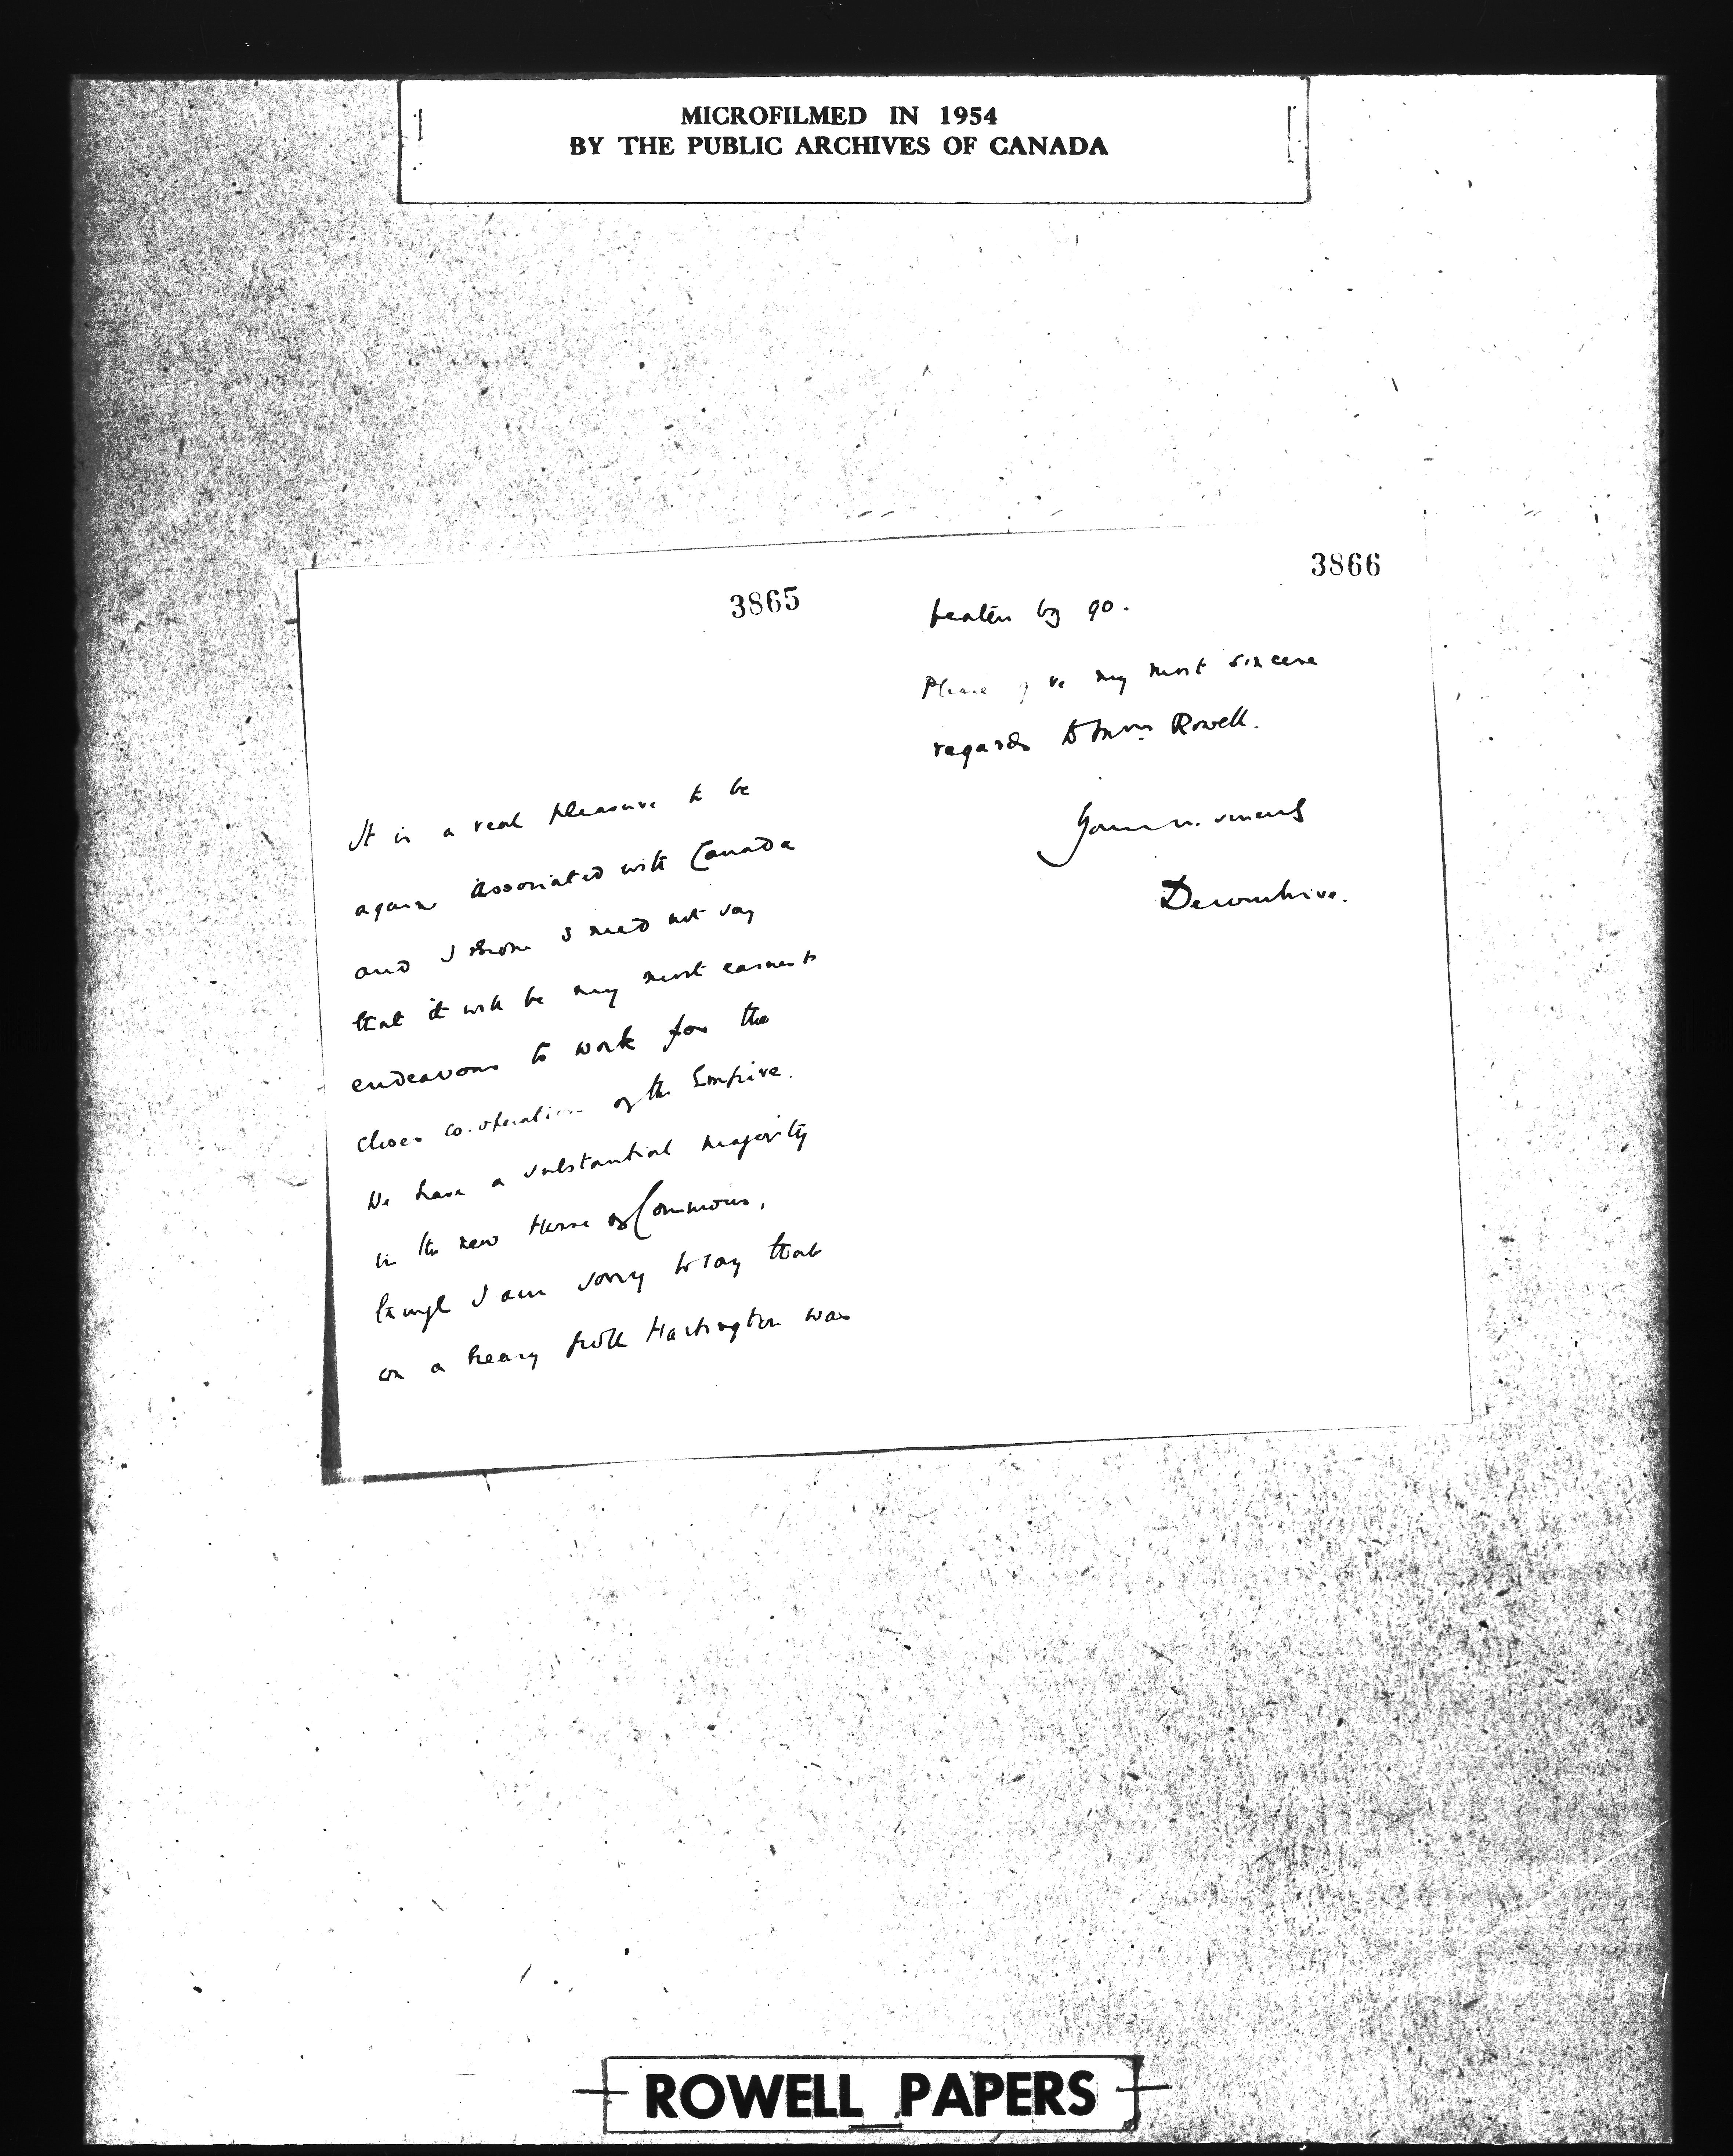 MICROFILMED IN 1954
BY THE PUBLIC ARCHIVES OF CANADA
3865
It is a real pleasure to be
again associated with Canada
and I know I need not say
that it will be my most earnest
endeavour to work for the
closer co-operation of the Empire.
We have a substantial majority
in the new House of Commons,
though I am sorry to say that
on a heavy poll Hartington was
3866
beaten by 90.
Please give my most sincere
regards to Mrs. Rowell.
Yours v. sincerely
Devonshire.
ROWELL PAPERS